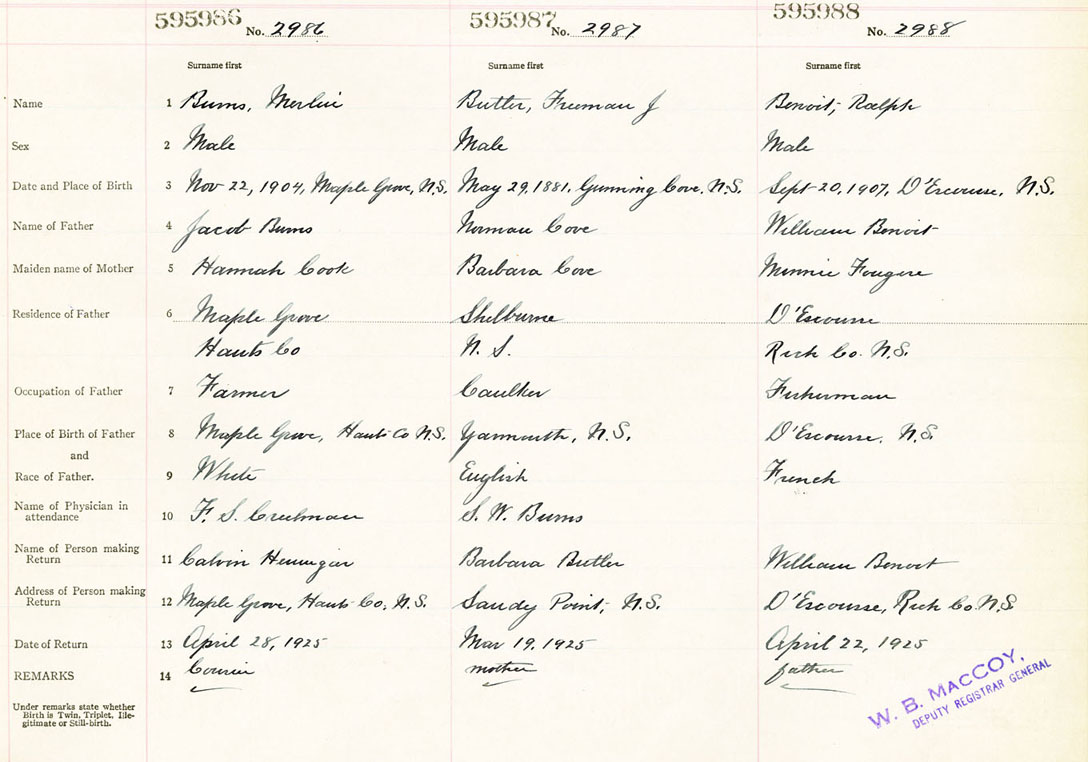 595986 595987 595988
No. 2986 No. 2987 No. 2988
Surname first Surname first Surname first
Name 1 Burns, Merlin Butler, Freeman J Benoit, Ralph
Sex 2 Male Male Male
Date and Place of Birth 3 Nov 22, 1904, Maple Grove, N.S. May 29, 1881, Gunning Cove, N.S. Sept 20, 1907, D'Escousse, N.S.
Name of Father 4 Jacob Burns Norman Cove William Benoit
Maiden name of Mother 5 Hannah Cook Barbara Cove Minnie Fougere
Residence of Father 6 Maple Grove Shelburne D'Escousse
Hants Co N. S. Rich Co. N.S.
Occupation of Father 7 Farmer Caulker Fisherman
Place of Birth of Father 8 Maple Grove, Hants Co N.S. Yarmouth, N.S. D'Escousse, N.S.
and
Race of Father. 9 White English French
Name of Physician in
attendance 10 F. S. Creelman S. W. Burns
Name of Person making
Return 11 Calvin Hennigar Barbara Butler William Benoit
Address of Person making
Return 12 Maple Grove, Hants Co, N.S. Sandy Point, N.S. D'Escousse, Rich Co. N.S.
Date of Return 13 April 28, 1925 Mar 19, 1925 April 22, 1925
REMARKS 14 Cousin mother father
Under remarks state whether
Birth is Twin, Triplet, Ille-
gitimate or Still-birth.
W. B. MACCOY,
DEPUTY REGISTRAR GENERAL